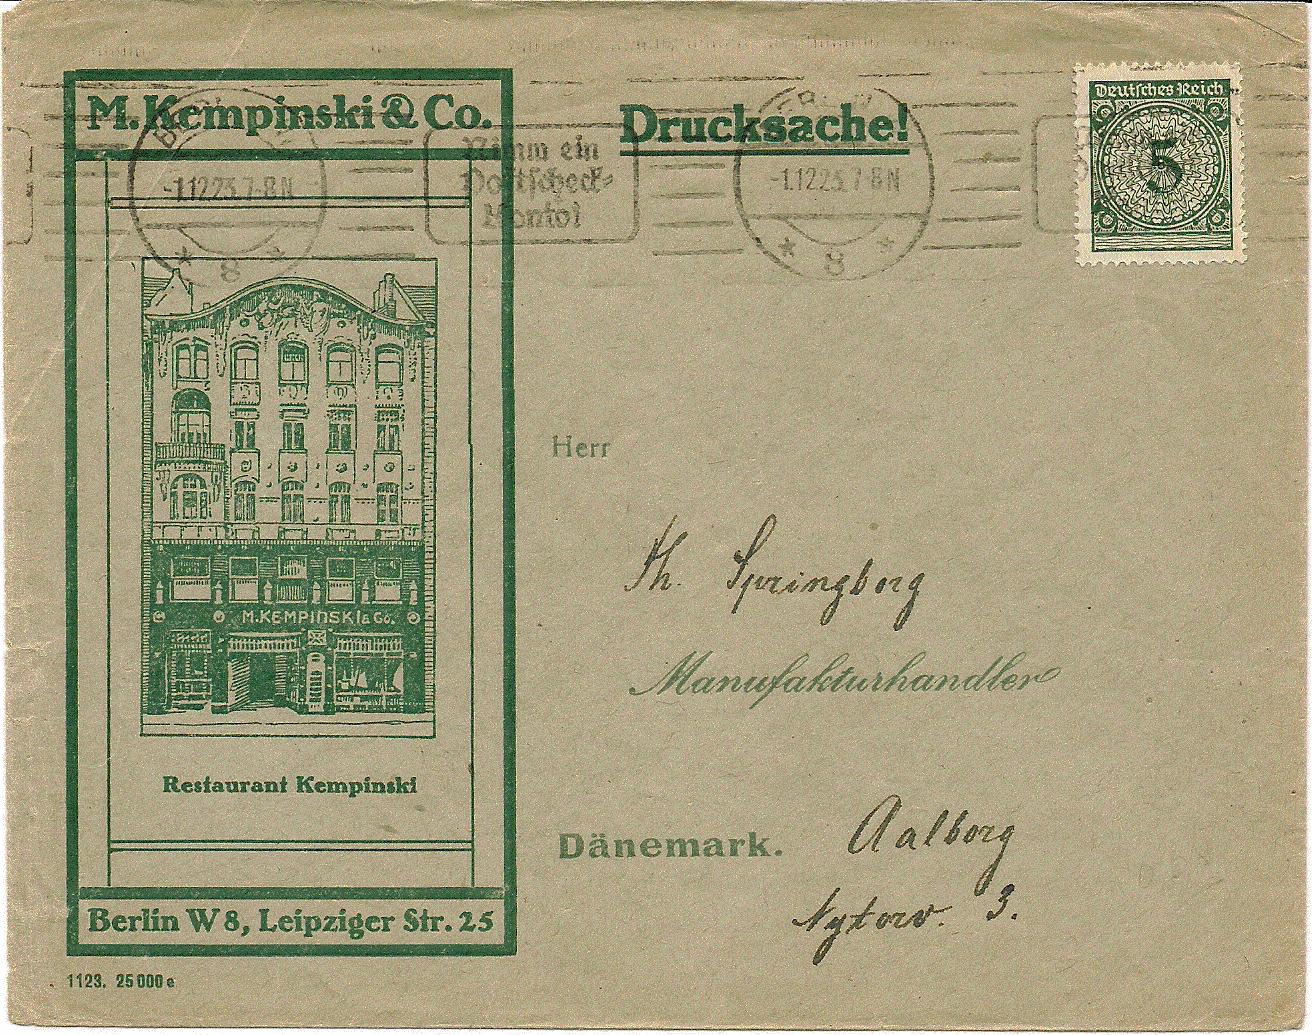 M. Kempinski & Co.
Drucksache!
Deutsches Reich
5
BERLIN W
-1.12.23.7-8N
* 8 *
Nimm ein
Postscheck-
Konto!
BERLIN W
-1.12.23.7-8N
* 8 *
M. KEMPINSKI & Co.
Restaurant Kempinski
Berlin W 8, Leipziger Str. 25
1123. 25 000 e
Herr
Th. Springborg
Manufakturhandler
Dänemark.
Aalborg
Nytorv. 3.